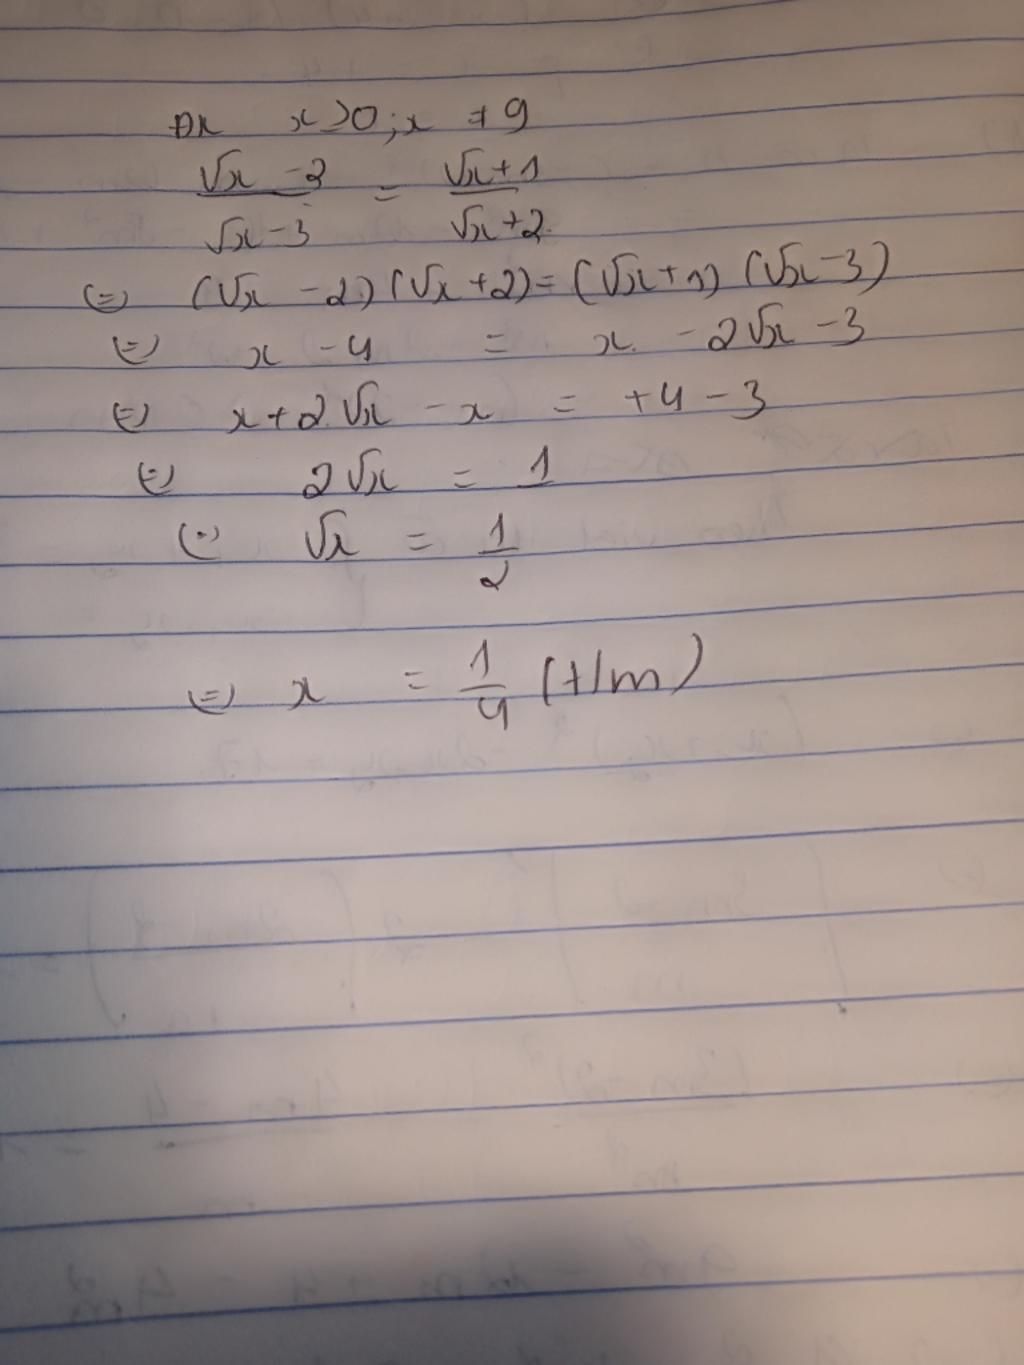 ĐK x ≥ 0 ; x ≠ 9
(√x - 2)/(√x - 3) = (√x + 1)/(√x + 2)
(=) (√x - 2)(√x + 2) = (√x + 1)(√x - 3)
(=) x - 4 = x - 2√x - 3
(=) x + 2√x - x = +4 - 3
(=) 2√x = 1
(=) √x = 1/2
(=) x = 1/4 (t/m)